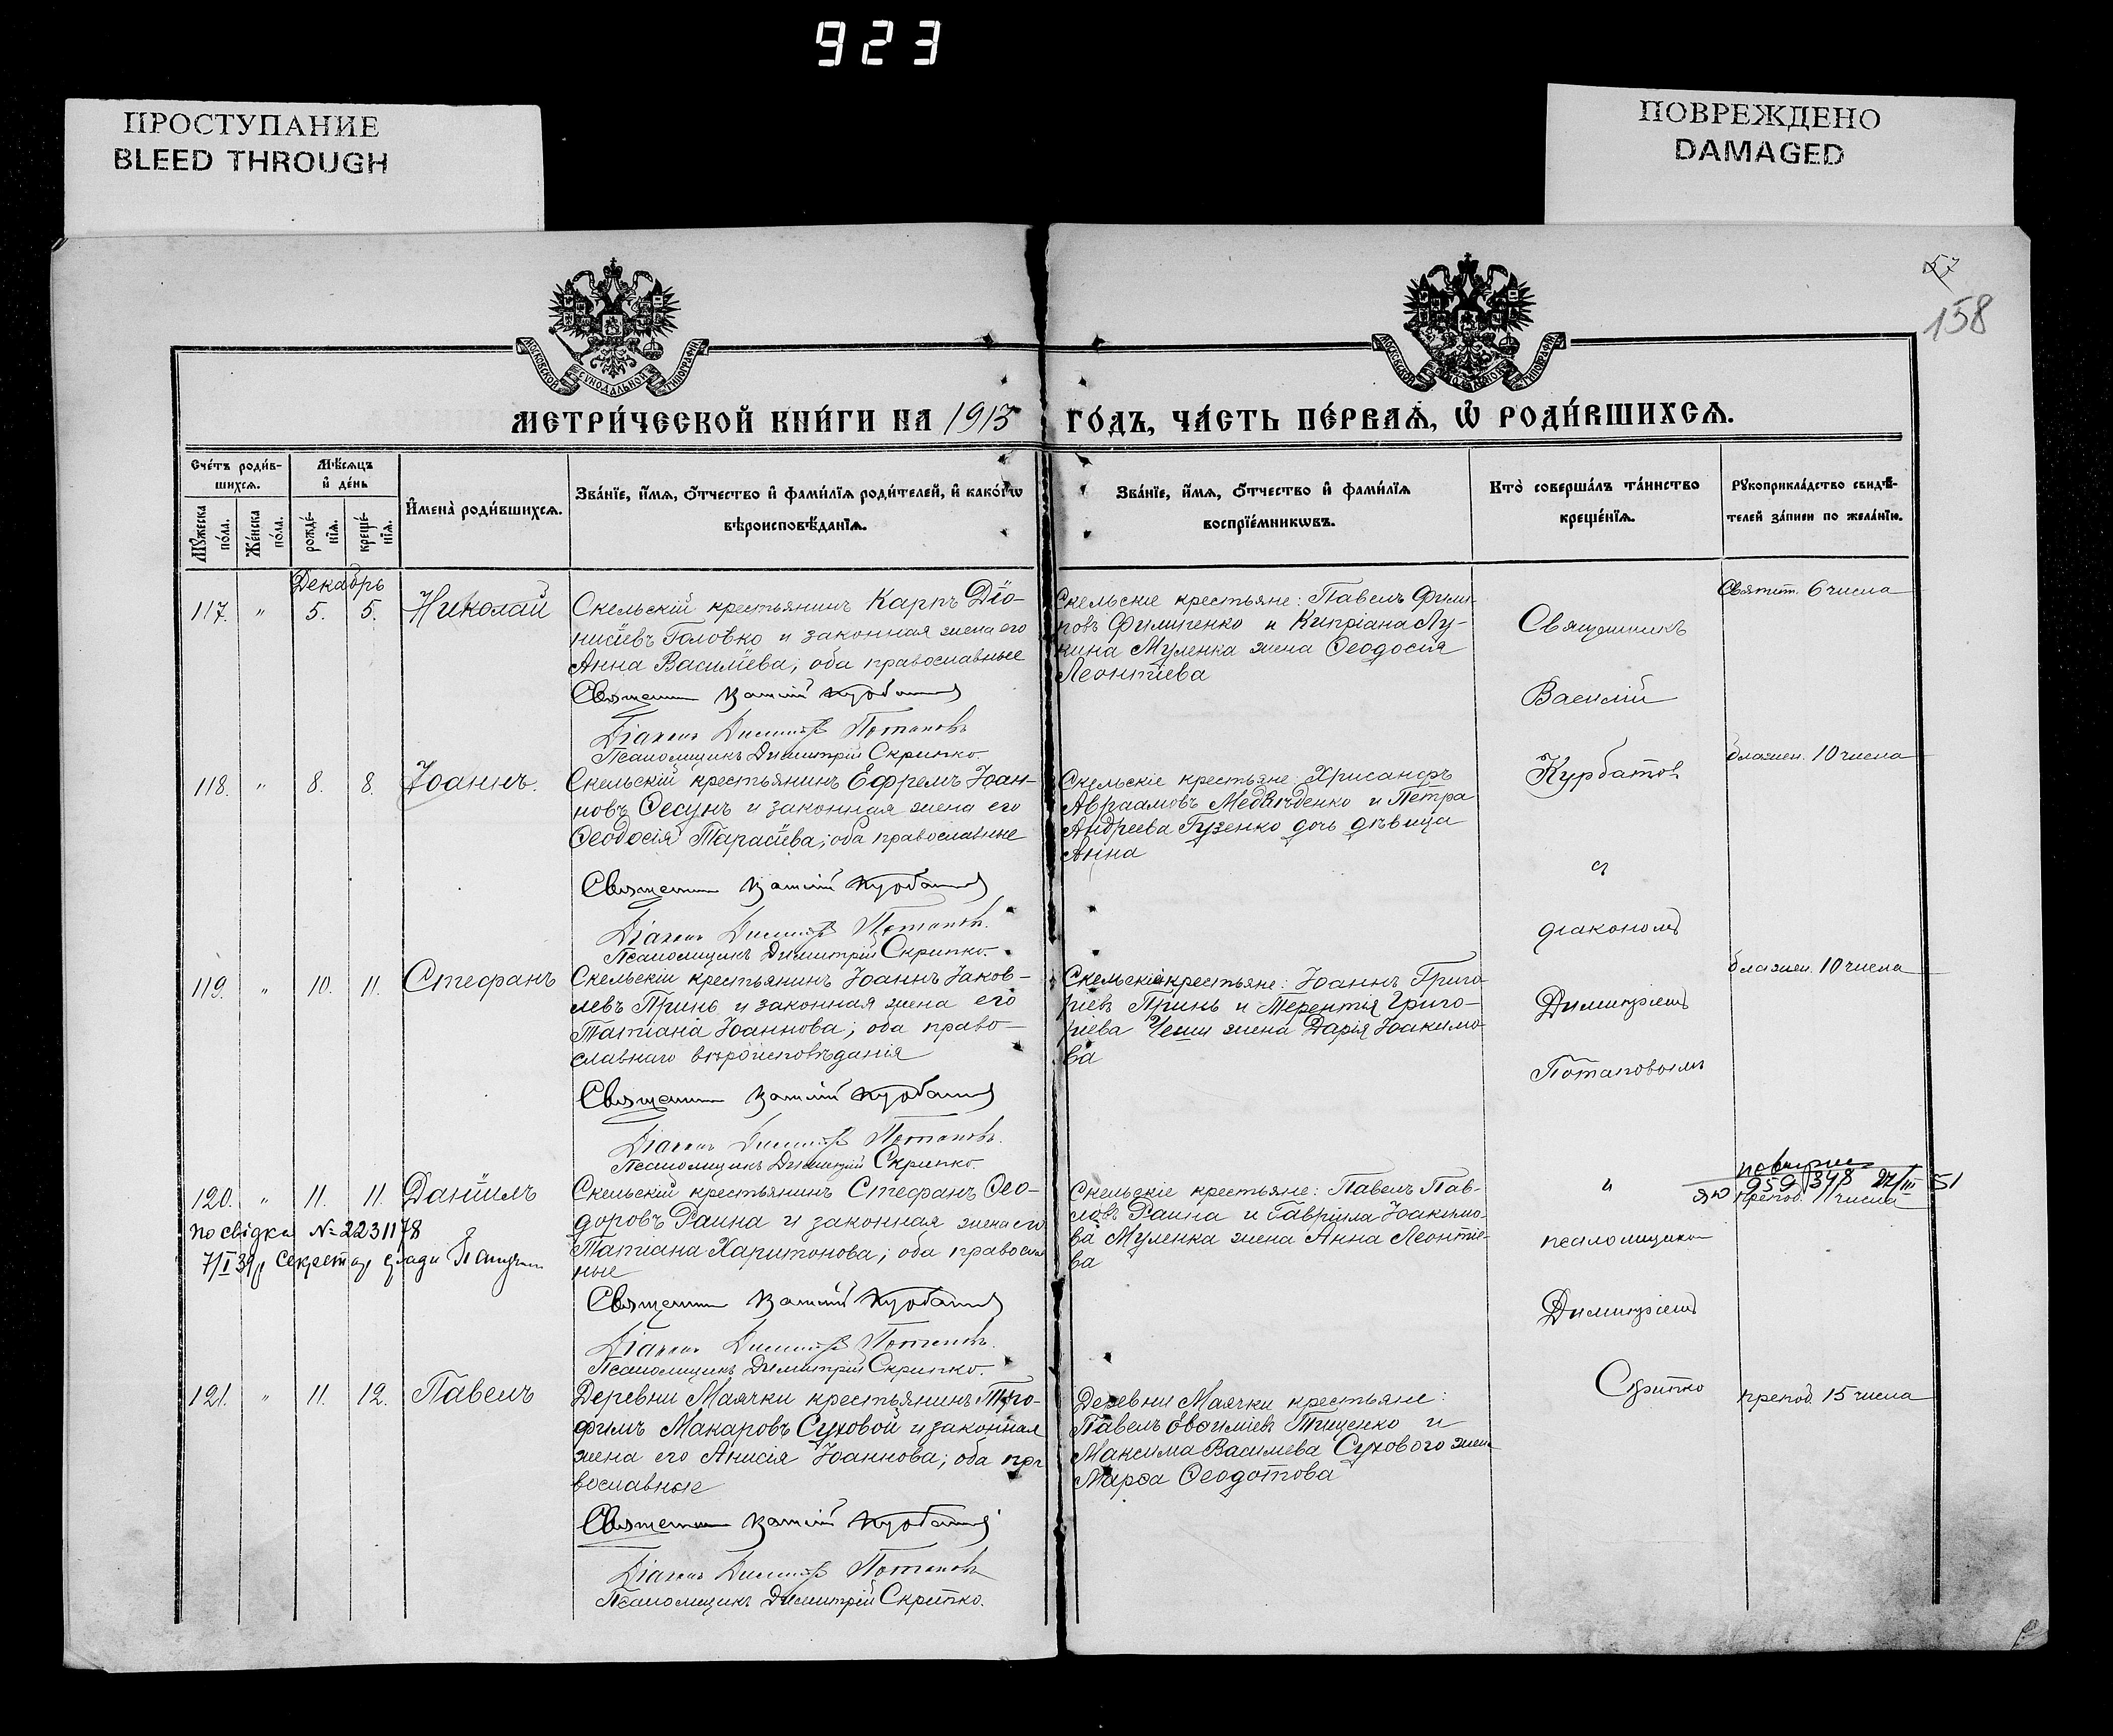 923
ПРОСТУПАНИЕ
BLEED THROUGH
ПОВРЕЖДЕНО
DAMAGED
57
158
МОСКОВСКОЙ СѴНОДАЛЬНОЙ ТИПОГРАФІИ
МОСКОВСКОЙ СѴНОДАЛЬНОЙ ТИПОГРАФІИ
МЕТРИ́ЧЕСКОЙ КНИ́ГИ НА 1913 ГО́ДЪ, ЧА́СТЬ ПЕ́РВАѦ, Ѿ РОДИ́ВШИХСѦ.
Сче́тъ роди́в-
шихсѧ.
Мѣ́сѧцъ
и҆ де́нь
Мꙋ́жеска по́ла.
Же́нска по́ла.
рожде́-нїѧ.
креще́-нїѧ.
И҆мена̀ роди́вшихсѧ.
Зва́нїе, и҆́мѧ, ѻ҆́тчество и҆ фами́лїѧ роди́телей, и҆ како́гѡ
вѣроисповѣ́данїѧ.
Зва́нїе, и҆́мѧ, ѻ҆́тчество и҆ фами́лїѧ
воспрїе́мникѡвъ.
Кто̀ соверша́лъ та́инство
креще́нїѧ.
Рꙋкоприкла́дство свидѣ́-
телей за́писи по жела́нїю.
Декабрь
117. " 5. 5. Николай
Скельскій крестьянинъ Карпъ Діо-
нисіевъ Головко и законная жена его
Анна Василіева; оба православные
Священникъ Василій Курбатовъ
Діаконъ Димитрій Потаповъ
Псаломщикъ Димитрій Скрипко.
Скельскіе крестьяне: Павелъ Филип-
повъ Филипенко и Кипріана Лу-
кина Муленка жена Ѳеодосія
Леонтіева
Священникъ
Василій
Курбатовъ
съ
діакономъ
Димитріемъ
Потаповымъ
и
псаломщикомъ
Димитріемъ
Скрипко
Святит. 6 числа
118. " 8. 8. Іоаннъ.
Скельскій крестьянинъ Ефремъ Іоан-
новъ Ѳесунъ и законная жена его
Ѳеодосія Тарасіева; оба православные
Священникъ Василій Курбатовъ
Діаконъ Димитрій Потаповъ.
Псаломщикъ Димитрій Скрипко.
Скельскіе крестьяне: Хрисанѳъ
Авраамовъ Медвѣденко и Петра
Андреева Гузенко дочь дѣвица
Анна
блажен. 10 числа
119. " 10. 11. Стефанъ
Скельскій крестьянинъ Іоаннъ Іаков-
левъ Принь и законная жена его
Татіана Іоаннова; оба право-
славнаго вѣроисповѣданія
Священникъ Василій Курбатовъ
Діаконъ Димитрій Потаповъ.
Псаломщикъ Димитрій Скрипко.
Скельскіе крестьяне: Іоаннъ Григо-
ріевъ Принь и Терентія Григо-
ріева Чеши жена Дарія Іоакимо-
ва
блажен. 10 числа
120. " 11. 11. Даніилъ
посвідка №2231178
7/I 39р секретар сради
Скельскій крестьянинъ Стефанъ Ѳео-
доровъ Раина и законная жена его
Татіана Харитонова; оба православ
ные
Священникъ Василій Курбатовъ
Діаконъ Димитрій Потаповъ.
Псаломщикъ Димитрій Скрипко.
Скельскіе крестьяне: Павелъ Пав-
ловъ Раина и Гавріила Іоакимо-
ва Муленка жена Анна Леонтіе-
ва
повторне
ЯЮ 959348 27/III 51
препод. 11 числа
121. " 11. 12. Павелъ
Деревни Маячки крестьянинъ Тро-
фимъ Макаровъ Суховой и законная
жена его Анисія Іоаннова; оба пра
вославные
Священникъ Василій Курбатовъ
Діаконъ Димитрій Потаповъ
Псаломщикъ Димитрій Скрипко.
Деревни Маячки крестьяне:
Павелъ Евѳиміевъ Тищенко и
Максима Василіева Сухового жена
Марѳа Ѳеодотова
препод. 15 числа